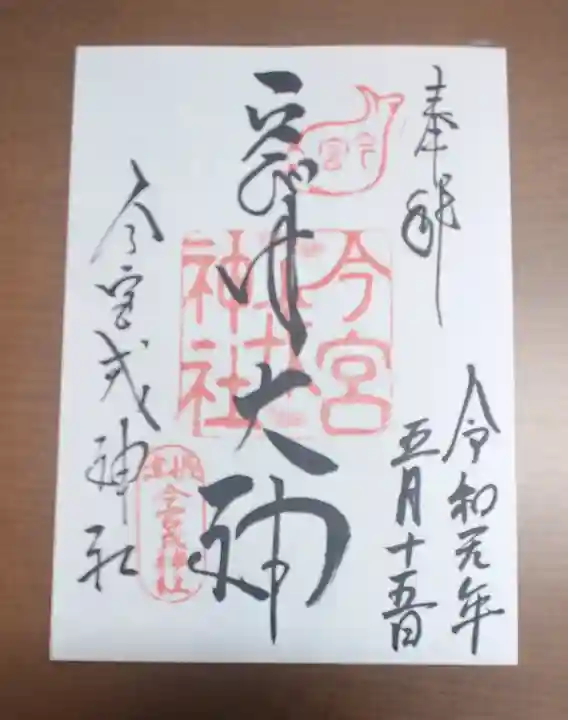 奉拝
令和元年
五月十五日
今宮
今宮
戎
神社
大神
今宮戎神社
今宮戎神社